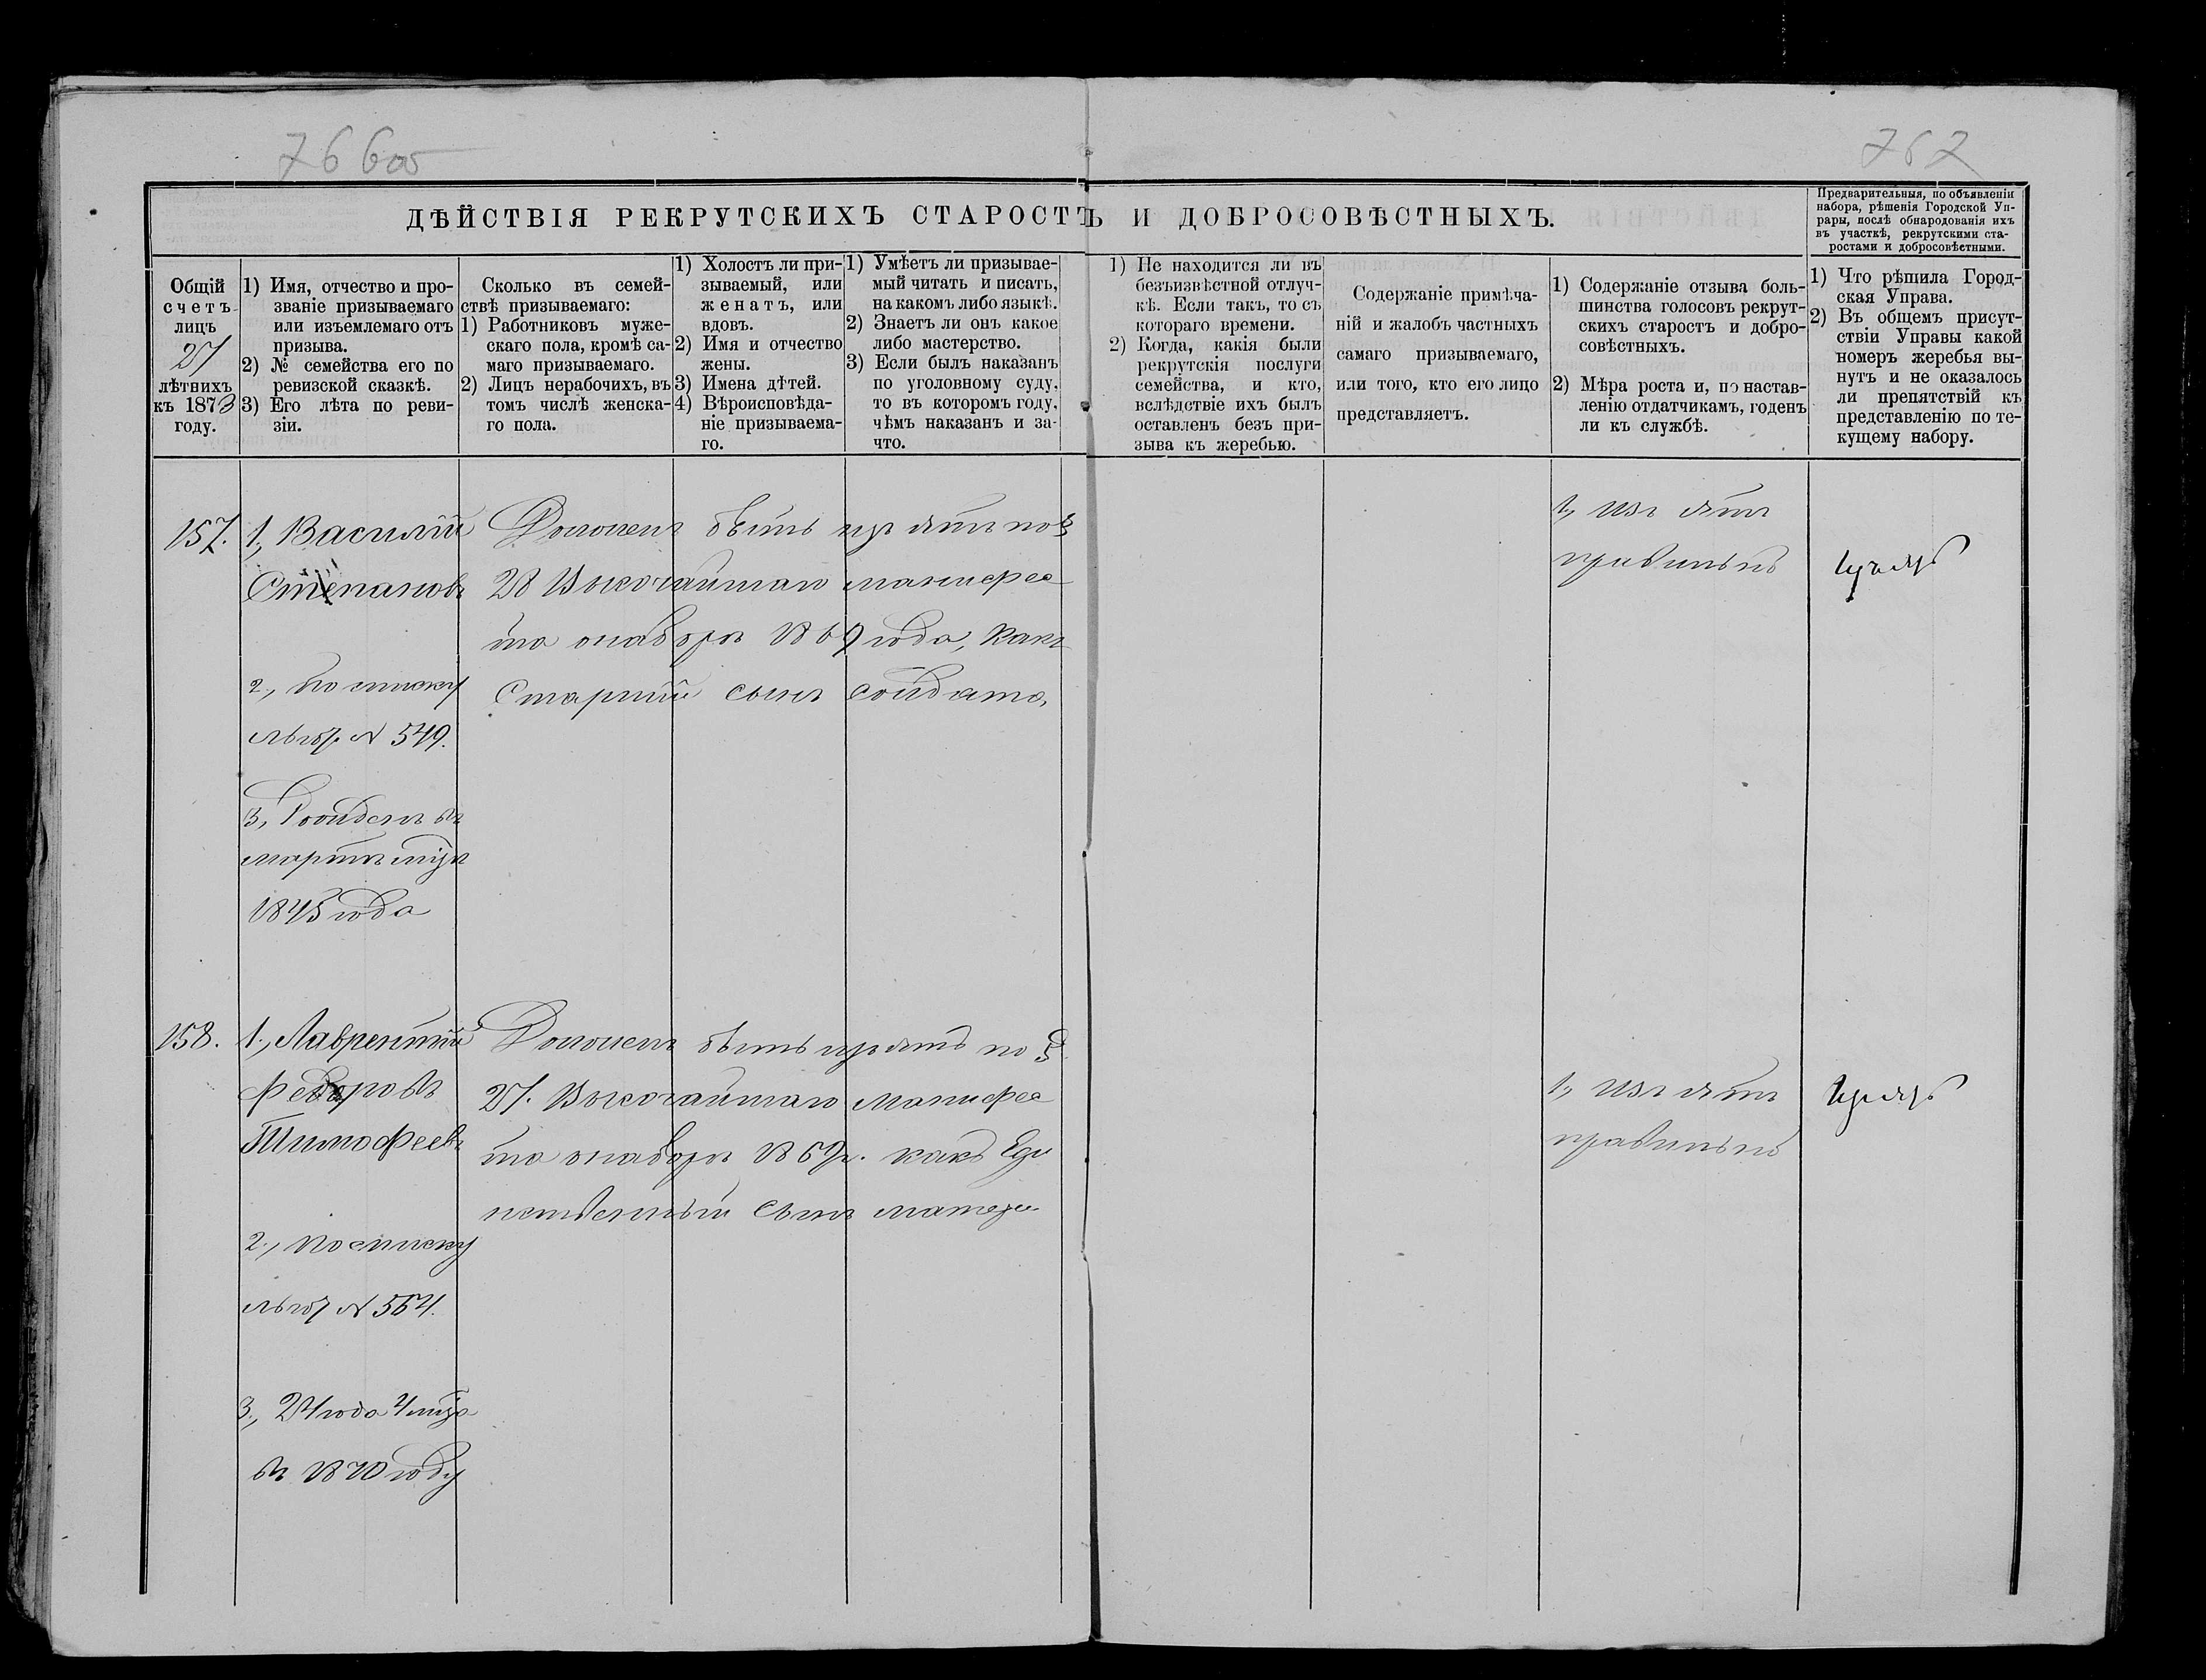 766об
767
ДѢЙСТВІЯ РЕКРУТСКИХЪ СТАРОСТЪ И ДОБРОСОВѢСТНЫХЪ.
Предварительныя, по объявленіи
набора, рѣшенія Городской Уп-
рары, послѣ обнародованія ихъ
въ участкѣ, рекрутскими ста-
ростами и добросовѣстными.
Общій
счетъ
лицъ
27
лѣтнихъ
къ 1873
году.
1) Имя, отчество и про-
званіе призываемаго
или изъемлемаго отъ
призыва.
2) № семейства его по
ревизской сказкѣ.
3) Его лѣта по реви-
зіи.
Сколько въ семей-
ствѣ призываемаго:
1) Работниковъ муже-
скаго пола, кромѣ са-
маго призываемаго.
2) Лицъ нерабочихъ, въ
томъ числѣ женска-
го пола.
1) Холостъ ли при-
зываемый, или
женатъ, или
вдовъ.
2) Имя и отчество
жены.
3) Имена дѣтей.
4) Вѣроисповѣда-
ніе призываема-
го.
1) Умѣетъ ли призывае-
мый читать и писать,
на какомъ либо языкѣ.
2) Знаетъ ли онъ какое
либо мастерство.
3) Если былъ наказанъ
по уголовному суду,
то въ которомъ году,
чѣмъ наказанъ и за-
что.
1) Не находится ли въ
безъизвѣстной отлуч-
кѣ. Если такъ, то съ
котораго времени.
2) Когда, какія были
рекрутскія послуги
семейства, и кто,
вслѣдствіе ихъ былъ
оставленъ безъ при-
зыва къ жеребью.
Содержаніе примѣча-
ній и жалобъ частныхъ
самаго призываемаго,
или того, кто его лицо
представляетъ.
1) Содержаніе отзыва боль-
шинства голосовъ рекрут-
скихъ старостъ и добро-
совѣстныхъ.
2) Мѣра роста и, по настав-
ленію отдатчикамъ, годенъ
ли къ службѣ.
1) Что рѣшила Город-
ская Управа.
2) Въ общемъ присут-
ствіи Управы какой
номеръ жеребья вы-
нутъ и не оказалось
ли препятствій къ
представленію по те-
кущему набору.
157.
1., Василій
Степановъ
2., По списку
льгот N 549.
3., Рожденъ въ
мартѣ мца
1845 года
Долженъ быть изъятъ по §
28 Высочайшаго манифес
та о наборѣ 1869 года, какъ
Старшій сынъ солдата,
1., Изъятъ
правильнѣ
158.
1., Лаврентій
Федоровъ
Тимофеевъ
2., По списку
льгот N 564.
3., 24 года 4 мца
въ 1870 году
Долженъ быть изъятъ по §
27. Высочайшаго манифес
та о наборѣ 1869г. какъ Еди
нственный сынъ матери
1., Изъятъ
правильнѣ